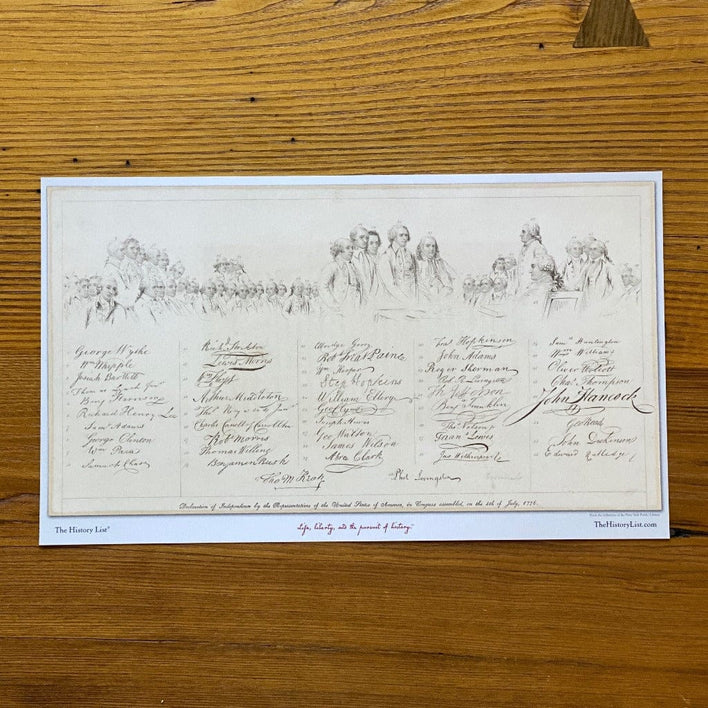 George Wythe
Wm Whipple
Josiah Bartlett
Thomas Lynch Junr
Benj Harrison
Richard Henry Lee
Saml Adams
George Clinton
Wm Paca
Samuel Chase
Richd Stockton
Lewis Morris
Arthur Middleton
Thos Heyward Junr
Charles Carroll of Carrollton
Robt Morris
Thomas Willing
Benjamin Rush
Tho M Kean
Elbridge Gerry
Robt Treat Paine
Wm Hooper
Step Hopkins
William Ellery
Geo Clymer
Joseph Hewes
Geo Walton
James Wilson
Abra Clark
Fras Hopkinson
John Adams
Roger Sherman
Th Jefferson
Benj Franklin
Thos Nelson jr
Frans Lewis
Jno Witherspoon
Phil Livingston
Saml Huntington
Wm Williams
Oliver Wolcott
Chas Thompson
John Hancock
Geo Read
John Dickinson
Edward Rutledge
Declaration of Independence by the Representatives of the United States of America, in Congress assembled, on the 4th of July, 1776.
The History List®
Life, liberty, and the pursuit of history.™
From the collection of the New York Public Library
TheHistoryList.com